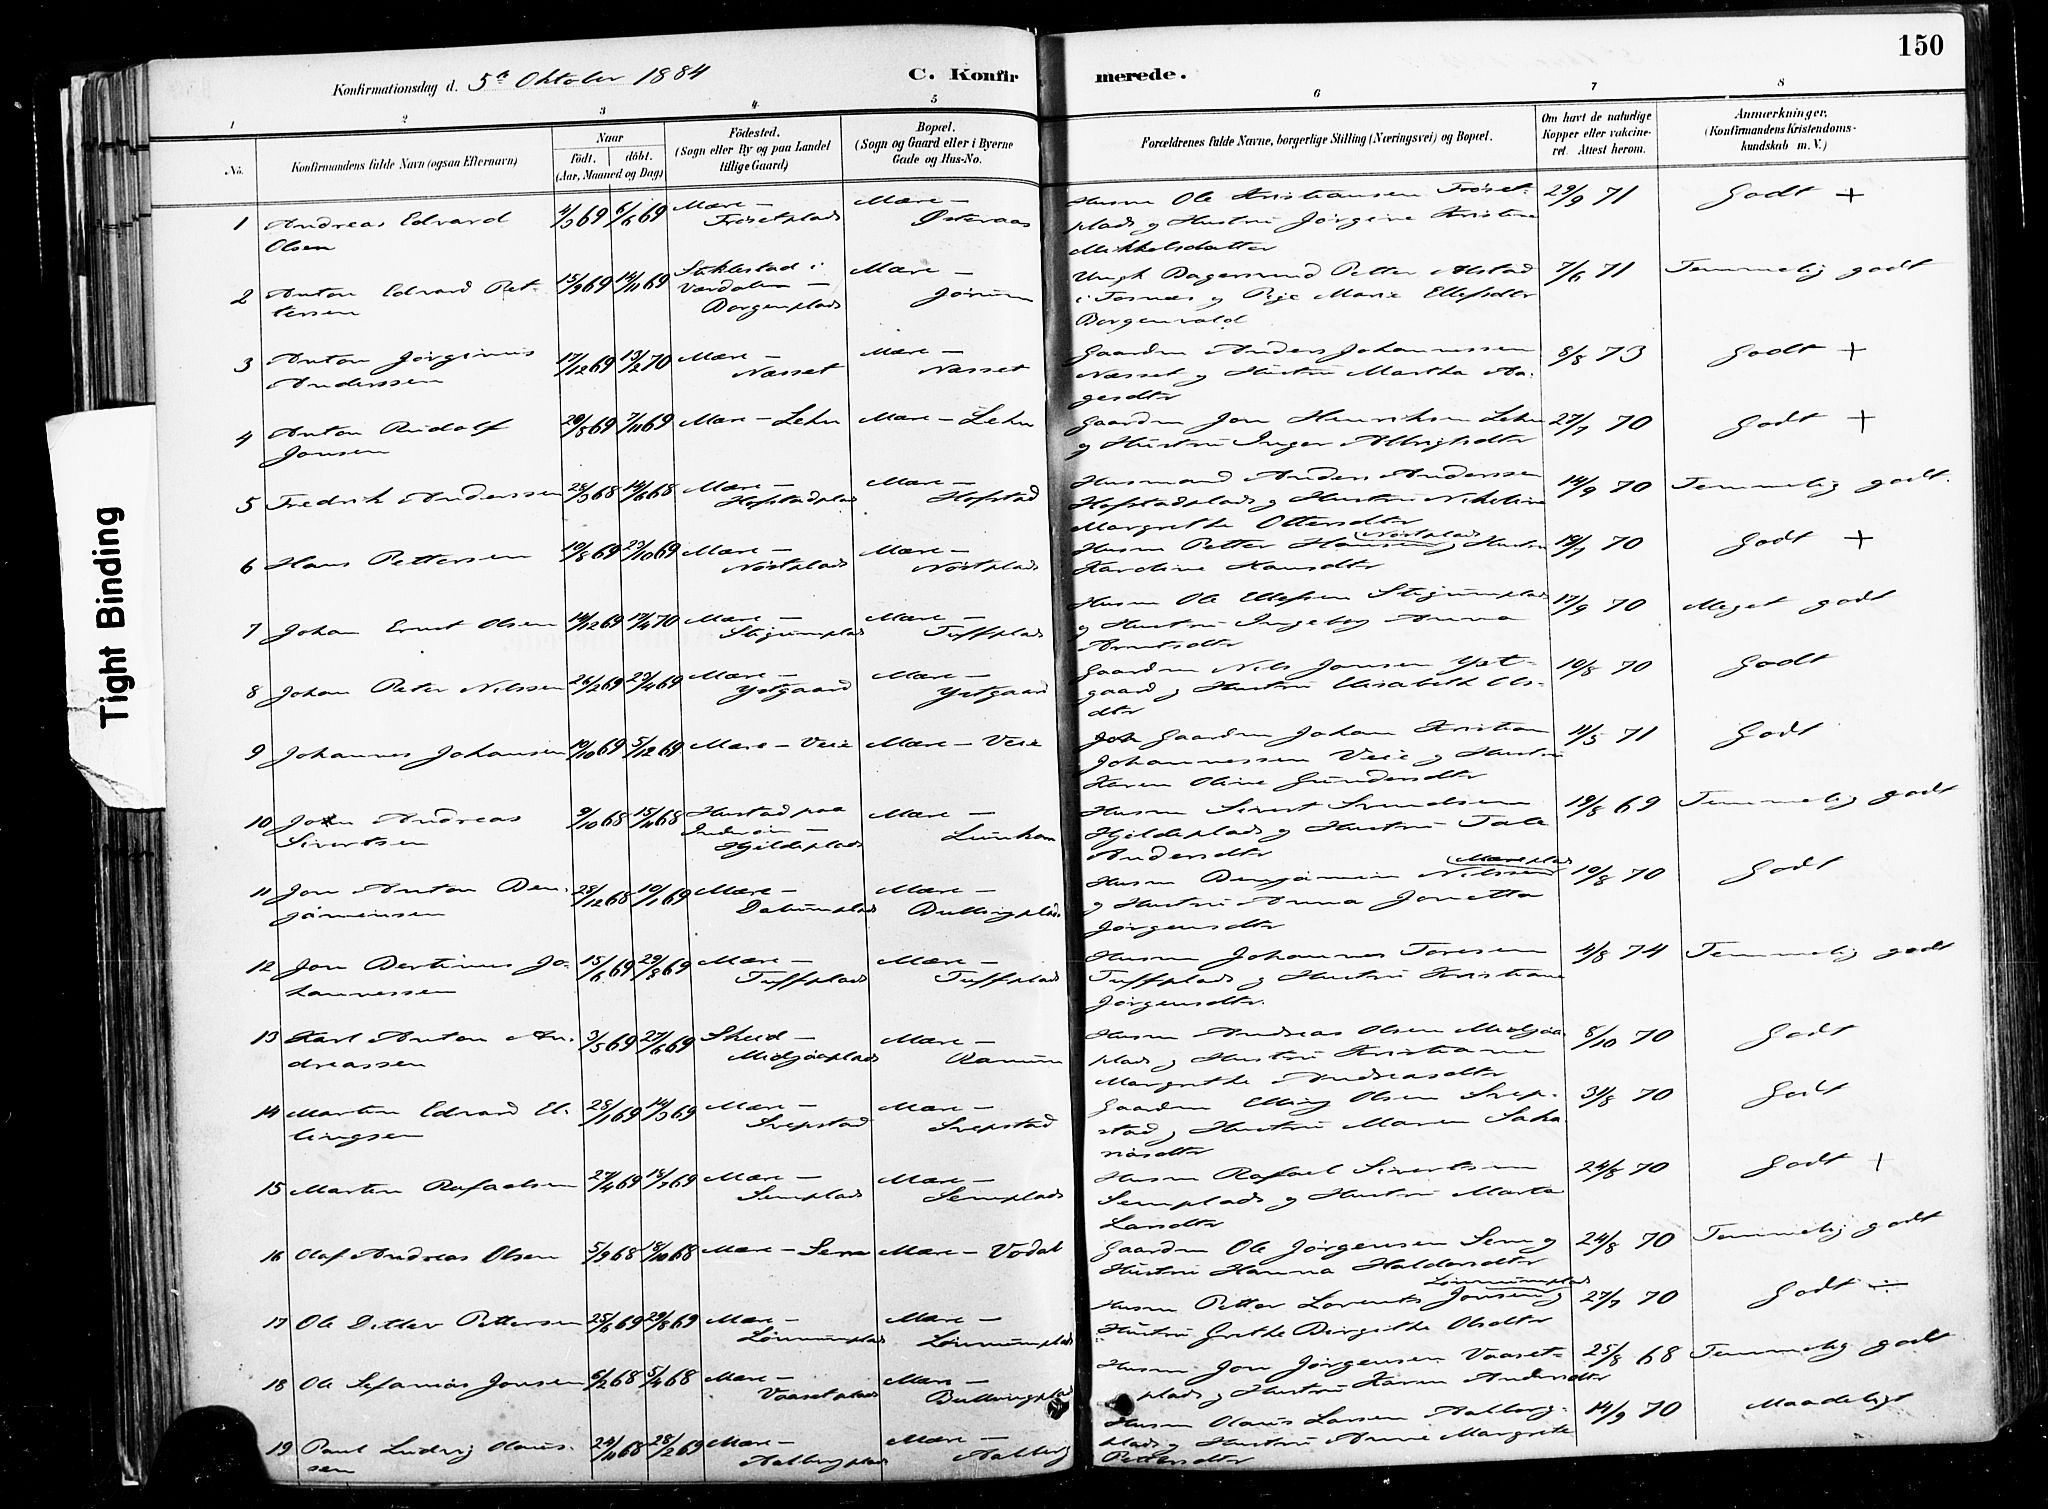 150
Konfirmationsdag d. 5te Oktober 1884
C. Konfirmerede.
1 2 3 4 5 6 7 8
No.
Konfirmandens fulde Navn (ogsaa Efternavn)
Naar
födt. döbt.
(Aar, Maaned og Dag)
Födested.
(Sogn eller By og paa Landet
tillige Gaard)
Bopæl.
(Sogn og Gaard eller i Byerne
Gade og Hus-No.
Forældrenes fulde Navne, borgerlige Stilling (Næringsvei) og Bopæl.
Om havt de naturlige
Kopper eller vakcine-
ret Attest herom.
Anmærkninger.
(Konfirmandens Kristendoms-
kundskab m. V.)
Tight Binding
1 Andreas Edvard
Olsen
4/3 69 6/6 69
Mære –
Mære –
Østeraas
Husm Ole Kristiansen
plads og Hustru Jørgine Kristine
Mikkelsdatter
29/9 71
Godt +
2 Anton Edvard Pet-
tersen
15/9 69 14/11 69
Stiklestad i
Værdalen –
Borgenplads
Mære –
Jørum
Ungk Petter Alstad
Marie
Borgenvald
7/6 71
Temmelig godt
3 Anton Jørginus
Anderssen
17/12 69 13/2 70
Mære –
Næsset
Mære –
Næsset
Gaardm Anders Johannessen
Næsset og Hustru Martha Aa-
gesdtr
8/8 73
Godt +
4 Anton Rudolf
Jonsen
20/8 69 7/11 69
Mære – Lehn
Mære – Lehn
Gaardm Jon Henriksen Lehn
og Hustru Inger Albrigtsdtr
27/7 70
Godt +
5 Fredrik Anderssen
28/3 68 14/6 68
Mære –
Hofstadplads
Mære –
Hofstad
Husmand Anders Anderssen
Hofstadplads og Hustru Nikeline
Margrethe Ottersdtr
14/9 70
Temmelig godt.
6 Hans Pettersen
19/8 69 23/10 69
Mære –
Nøstplads
Mære –
Nøstplads
Husm Petter Hansen Nøstplads og Hustru
Karoline Hansdtr
19/7 70
Godt +
7 Johan Ernst Olsen
14/12 69 17/4 70
Mære –
Stigumplads
Mære –
Tuffplads
Husm Ole Ellefsen Stigumplads
og Hustru Ingeborg Anna
Arntsdtr
17/9 70
Meget godt
8 Johan Peter Nilssen
26/2 69 23/4 69
Mære –
Ystgaard
Mære –
Ystgaard
Gaardm Nils Jonsen Yst-
gaard og Hustru Elisabeth Ols-
dtr
19/8 70
Godt
9 Johannes Johansen
19/10 69 5/12 69
Mære – Veie
Mære – Veie
Gaardm Johan Kristian
Johannessen Veie og Hustru
Karen Oline Gundersdtr
11/5 71
Godt
10 Jon Andreas
Sivertsen
9/10 68 15/11 68
Hustad paa
Inderøen –
Hjeldeplads
Mære –
Husm Sivert Svendsen
Hjeldeplads og Hustru Tale
Andersdtr
19/8 69
Temmelig godt
11 Jon Anton Ben-
jaminsen
28/12 68 19/1 69
Mære –
Dalumplads
Mære –
Bullingplads
Husm Benjamin Nilssen Mæreplads
og Hustru Anna Jonetta
Jørgensdtr
19/8 70
Godt
12 Jon Bertinus Jo-
hannessen
15/6 69 29/8 69
Mære –
Tuffplads
Mære –
Tuffplads
Husm Johannes Toresen
Tuffplads og Hustru Kristiane
Jørgensdtr.
4/8 74
Temmelig godt
13 Karl Anton An-
dreassen
3/5 69 27/6 69
Skeid –
Midjøplads
Mære –
Ranum
Husm Andreas Olsen
plads og Hustru Kristiane
Margrethe Andreasdtr
8/10 70
Godt
14 Martin Edvard El-
lingsen
28/1 69 14/3 69
Mære –
Svepstad
Mære –
Svepstad
Gaardm Elling Olsen Svep-
stad og Hustru Maren Saka-
riasdtr
31/8 70
Godt
15 Martin Rafaelsen
27/4 69 18/7 69
Mære –
Semplads
Mære –
Semplads
Husm Rafael Sivertsen
Semplads og Hustru Marta
Larsdtr
24/8 70
Godt +
16 Olaf Andreas Olsen
5/9 68 18/10 68
Mære – Sem
Mære – Vodal
Gaardm Ole Jørgensen Sem og
Hustru Hanna Haldorsdtr
24/8 70
Temmelig godt
17 Ole Ditlev Pettersen
25/6 69 29/8 69
Mære –
Lønnumplads
Mære –
Lønnumplads
Husm Petter Lorents Jonsen Lønnumplads og
Hustru Grethe Birgithe Olsdtr
27/7 70
Godt
18 Ole Sefanias Jonsen
6/2 68 5/4 68
Mære –
Vaasetplads
Mære –
Bullingplads
Husm Jon Jørgensen Vaaset-
plads og Hustru Karen Andersdtr
25/8 68
Temmelig godt
19 Paul Ludvig Olaus-
sen
24/11 68 28/2 69
Mære –
Aalbergplads
Mære –
Aalberg
Husm Olaus Larsen Aalberg-
plads og Hustru Anne Margrete
Pedersdtr
14/9 70
Maadeligt